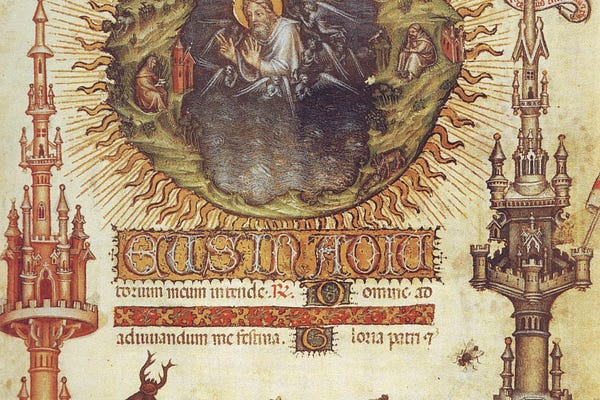 EUS IN ADIU
torium meum intende. ℟. Domine ad
adiuuandum me festina. Gloria patri ⁊